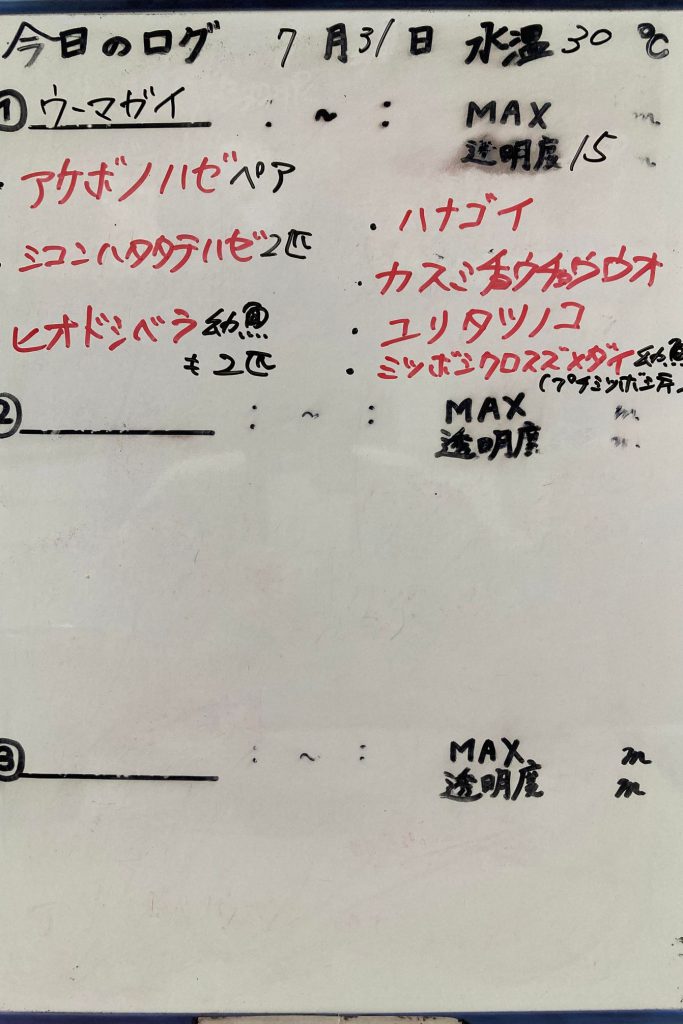 今日のログ 7月31日 水温30℃
① ウーマガイ : ~ : MAX m
透明度 15 m
・アケボノハゼペア
・ハナゴイ
・ミコンハタタテハゼ2匹
・カスミチョウチョウウオ
ヒオドシベラ幼魚
も2匹
・ユリタツノコ
・ミツボシクロスズメダイ幼魚
② : ~ : MAX m
透明度 m
③ : ~ : MAX m
透明度 m